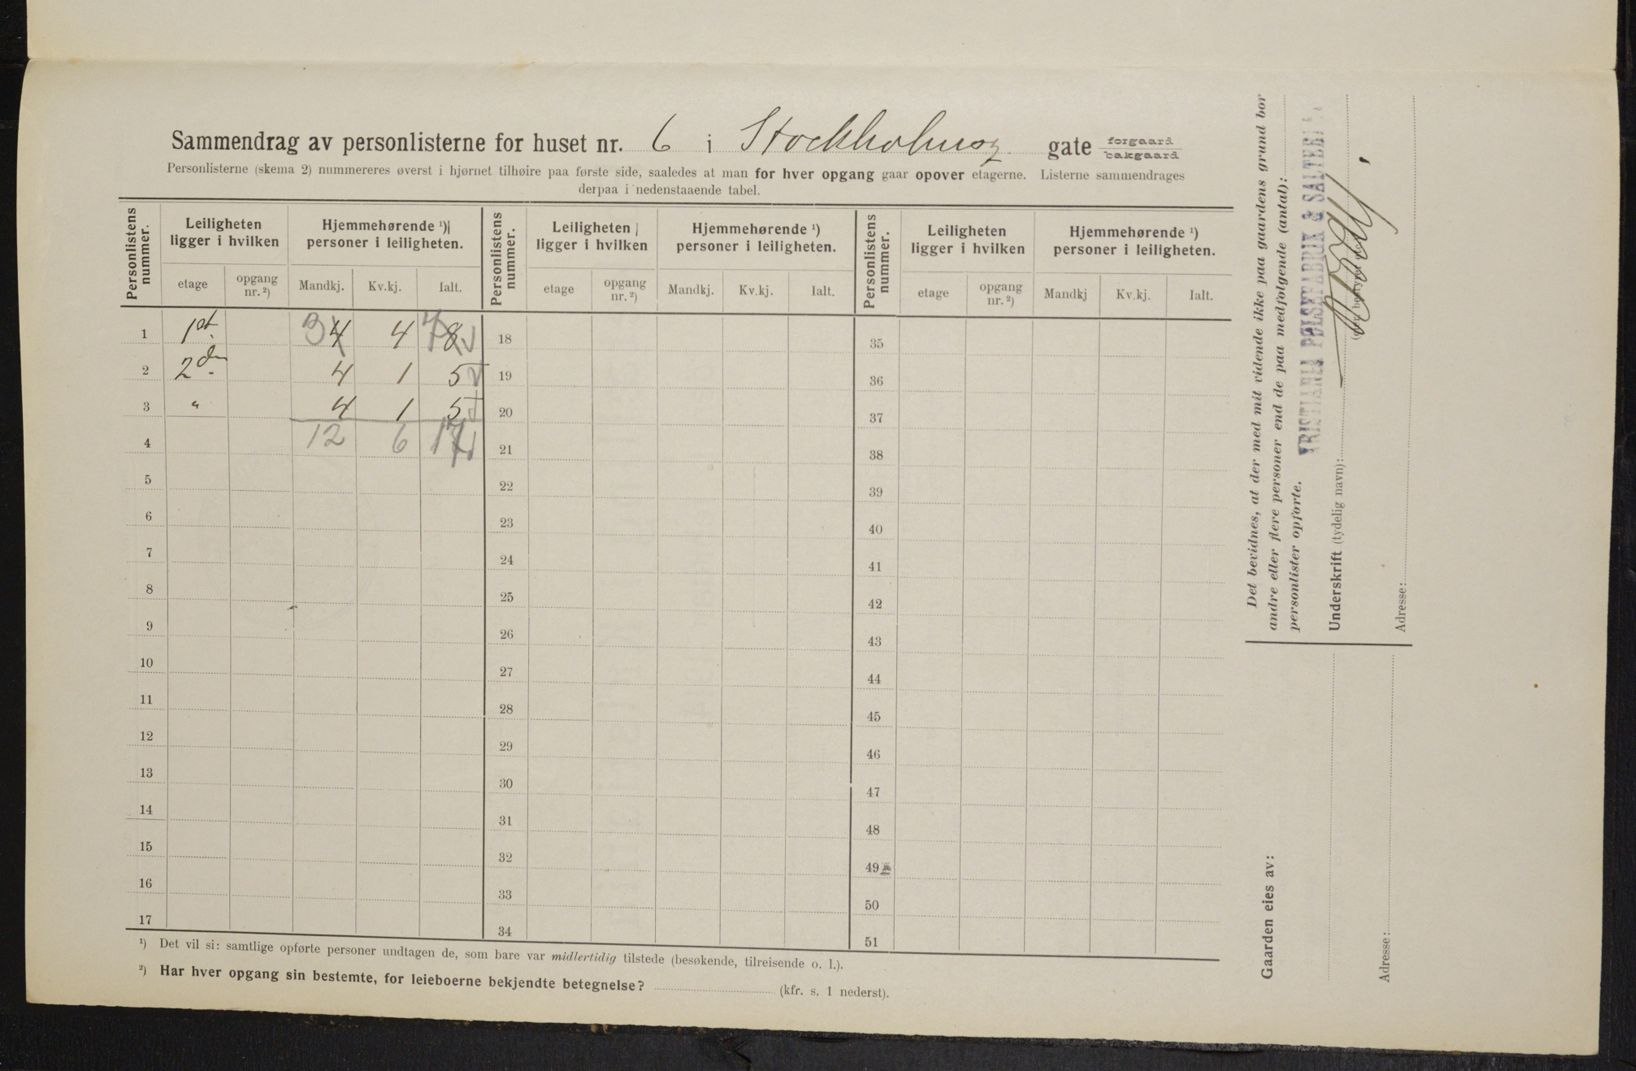 Sammendrag av personlisterne for huset nr. 6 i Stockholmsg. gate forgaard bakgaard
Personlisterne (skema 2) nummereres øverst i hjørnet tilhøire paa første side, saaledes at man for hver opgang gaar opover etagerne. Listerne sammendrages
derpaa i nedenstaaende tabel.
Personlistens nummer. Leiligheten ligger i hvilken Hjemmehørende ¹) personer i leiligheten. Personlistens nummer. Leiligheten ligger i hvilken Hjemmehørende ¹) personer i leiligheten. Personlistens nummer. Leiligheten ligger i hvilken Hjemmehørende ¹) personer i leiligheten.
etage opgang nr. ²) Mandkj. Kv.kj. Ialt. etage opgang nr. ²) Mandkj. Kv.kj. Ialt. etage opgang nr. ²) Mandkj Kv.kj. Ialt.
1 1st. 3 4 4 7 8 18 35
2 2den 4 1 5 19 36
3 " 4 1 5 20 37
4 12 6 17 21 38
5 22 39
6 23 40
7 24 41
8 25 42
9 26 43
10 27 44
11 28 45
12 29 46
13 30 47
14 31 48
15 32 49
16 33 50
17 34 51
¹) Det vil si: samtlige opførte personer undtagen de, som bare var midlertidig tilstede (besøkende, tilreisende o. l.).
²) Har hver opgang sin bestemte, for leieboerne bekjendte betegnelse? (kfr. s. 1 nederst).
Det bevidnes, at der med mit vidende ikke paa gaardens grund bor
andre eller flere personer end de paa medfølgende (antal):
personlister opførte.
KRISTIANIA PØLSEFABRIK & SALTERI
Underskrift (tydelig navn):
Adresse:
Gaarden eies av:
Adresse: